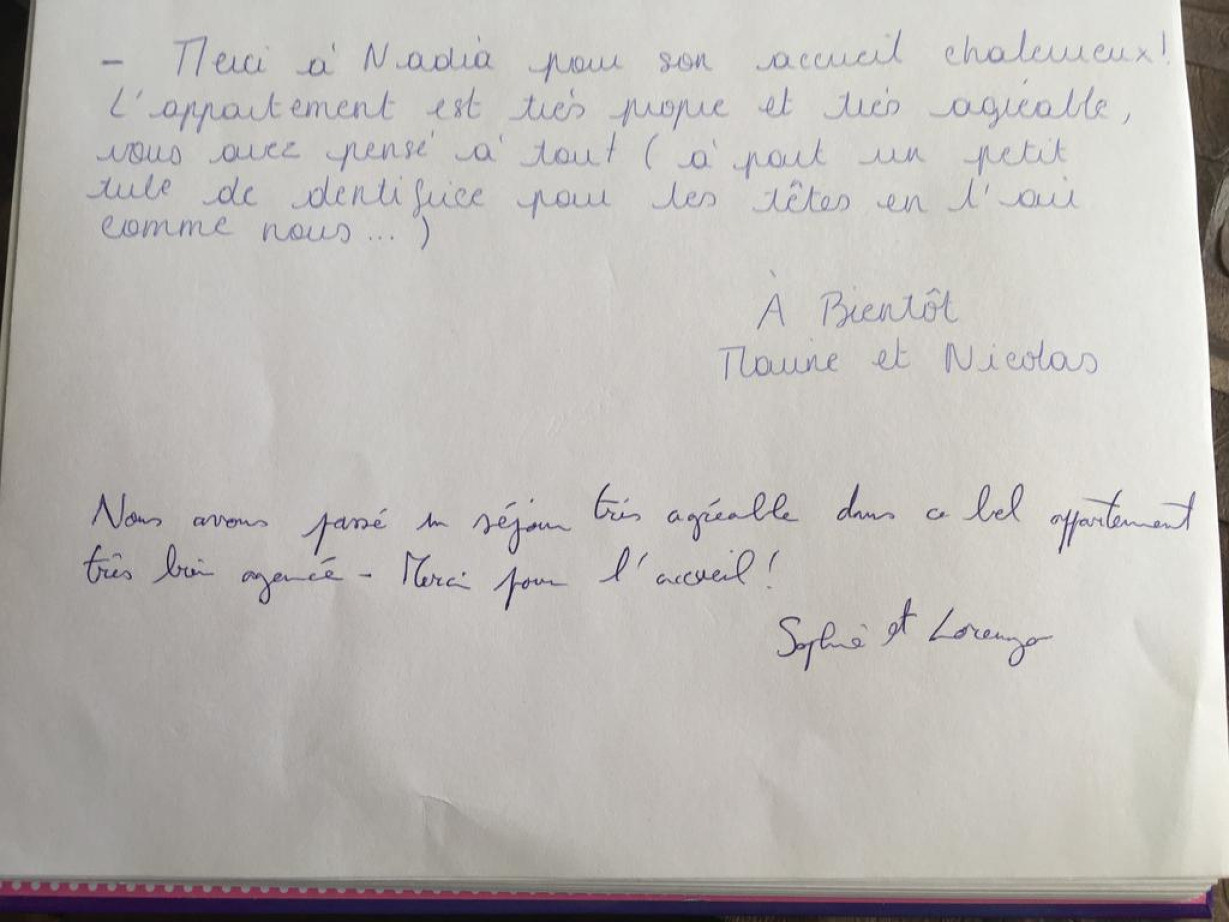 - Merci à Nadia pour son accueil chaleureux!
L'appartement est très propre et très agréable,
vous avez pensé à tout ( à part un petit
tube de dentifrice pour les têtes en l'air
comme nous... )
À Bientôt
et Nicolas
Nous avons passé un séjour très agréable dans ce bel appartement
très bien agencé - Merci pour l'accueil!
Sophie et Lorenzo